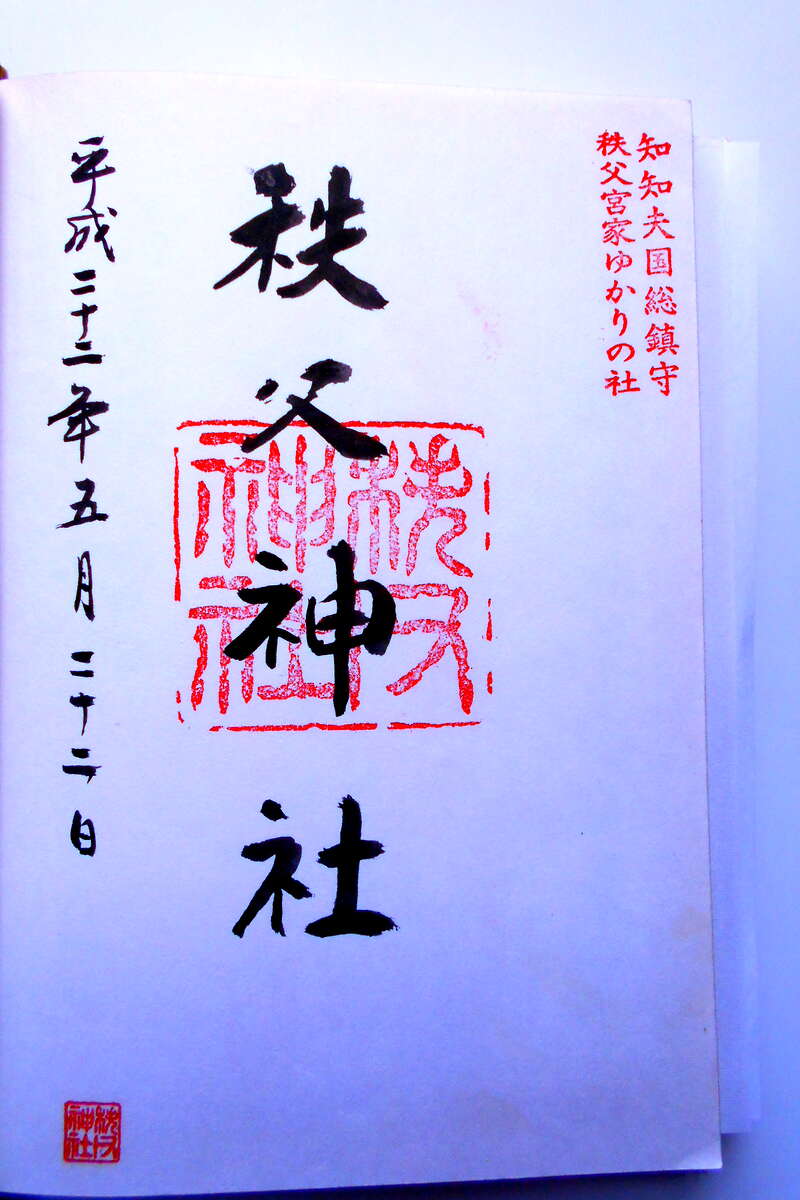 知知夫国総鎮守
秩父宮家ゆかりの社
秩父神社
秩父神社
平成二十二年五月二十二日
秩父神社